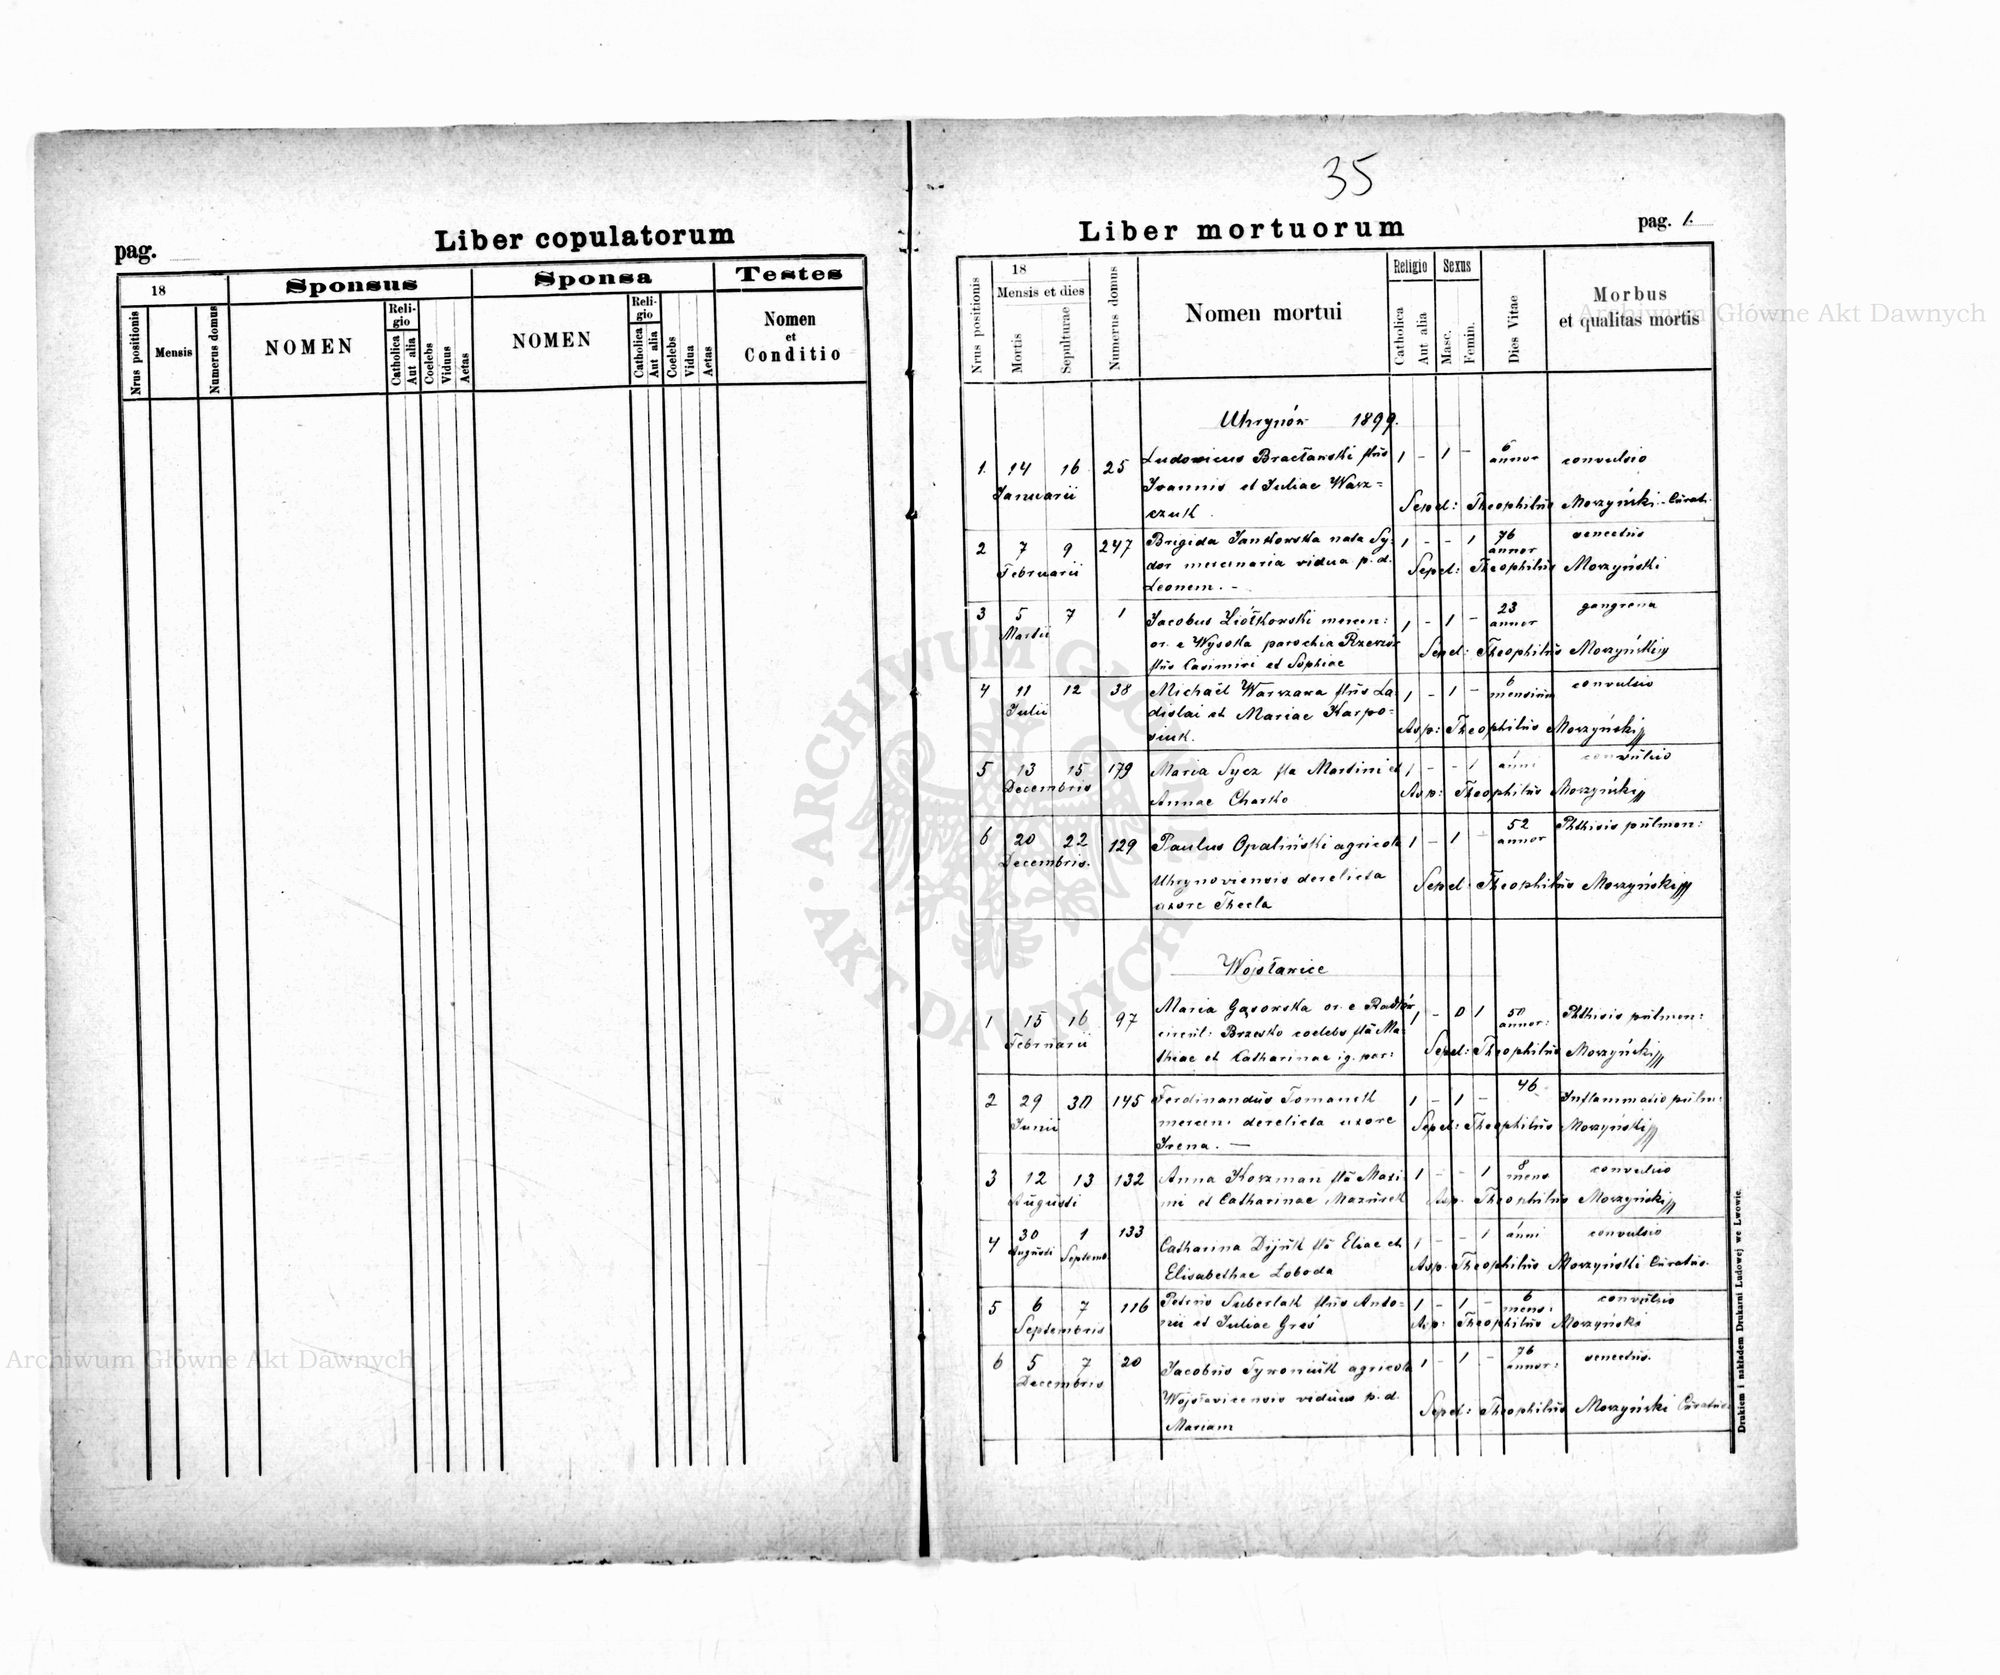 35
pag.
Liber copulatorum
18
Sponsus
Sponsa
Testes
Nrus positionis
Mensis
Numerus domus
NOMEN
Religio
Catholica
Aut alia
Coelebs
Viduus
Aetas
NOMEN
Religio
Catholica
Aut alia
Coelebs
Vidua
Aetas
Nomen
et
Conditio
Liber mortuorum
pag. 1.
Nrus positionis
18
Mensis et dies
Mortis
Sepulturae
Numerus domus
Nomen mortui
Religio
Catholica
Aut alia
Sexus
Masc.
Femin.
Dies Vitae
Morbus
et qualitas mortis
Uhrynów 1899.
1. 14 16 25 Ludovicus Bracławski flius 1 - 1 - 6 annor convulsio
Januarii Ioannis et Juliae Warsz=
czuk. Sepel: Theophilus Morzyński - Curat.
2 7 9 247 Brigida Jankowska nata Sy- 1 - - 1 76 annor senectus
Februarii dor mercenaria vidua p. d. Sepel: Theophilus Morzyński
Leonem. -
3 5 7 1 Jacobus Ziółkowski mercen: 1 - 1 - 23 annor gangrena
Martii or. e Wysoka parochia Rzeszów Sepel: Theophilus Morzyński
flius Casimiri et Sophiae
4 11 12 38 Michaël Warszawa flius La- 1 - 1 - 6 mensium convulsio
Julii dislai et Mariae Karpo= Asp: Theophilus Morzyński
wiuk.
5 13 15 179 Maria Sycz fla Martini et 1 - - 1 anni convulsio
Decembris Annae Charko Asp: Theophilus Morzyński
6 20 22 129 Paulus Opaliński agricola 1 - 1 52 annor Phthisis pulmon:
Decembris. Uhrynoviensis derelicta Sepel: Theophilus Morzyński
uxore Thecla
Wojsławice
1 15 16 97 Maria Gąsowska or. e Radłów 1 - 0 1 50 annor: Phthisis pulmon:
Februarii circul: Brzesko coelebs fla Ma-
thiae et Catharinae ig. par: Sepel: Theophilus Morzyński
2 29 30 145 Ferdinandus Tomanek 1 - 1 - 46 Inflammatio pulm:
Junii mercen: derelicta uxore Sepel: Theophilus Morzyński
Irena. -
3 12 13 132 Anna Korzman fla Maxi- 1 - - 1 8 mens convulsio
Augusti mi et Catharinae Mazurek Asp. Theophilus Morzyński
4 30 1 133 Catharina Dijuk fla Eliae et 1 - - 1 anni convulsio
Augusti Septemb. Elisabethae Łoboda Asp. Theophilus Morzyński Curatus.
5 6 7 116 Petrus Suberlak flius Anto= 1 - 1 - 6 mens: convulsio
Septembris nii et Juliae Greś Asp: Theophilus Morzyński
6 5 7 20 Jacobus Tyroniuk agricola 1 - 1 - 76 annor: senectus.
Decembris Wojsławicensis viduus p. d.
Mariam Sepel: Theophilus Morzyński Curatus
Drukiem i nakładem Drukarni Ludowej we Lwowie.
Archiwum Główne Akt Dawnych
Archiwum Główne Akt Dawnych
ARCHIWUM GŁÓWNE AKT DAWNYCH